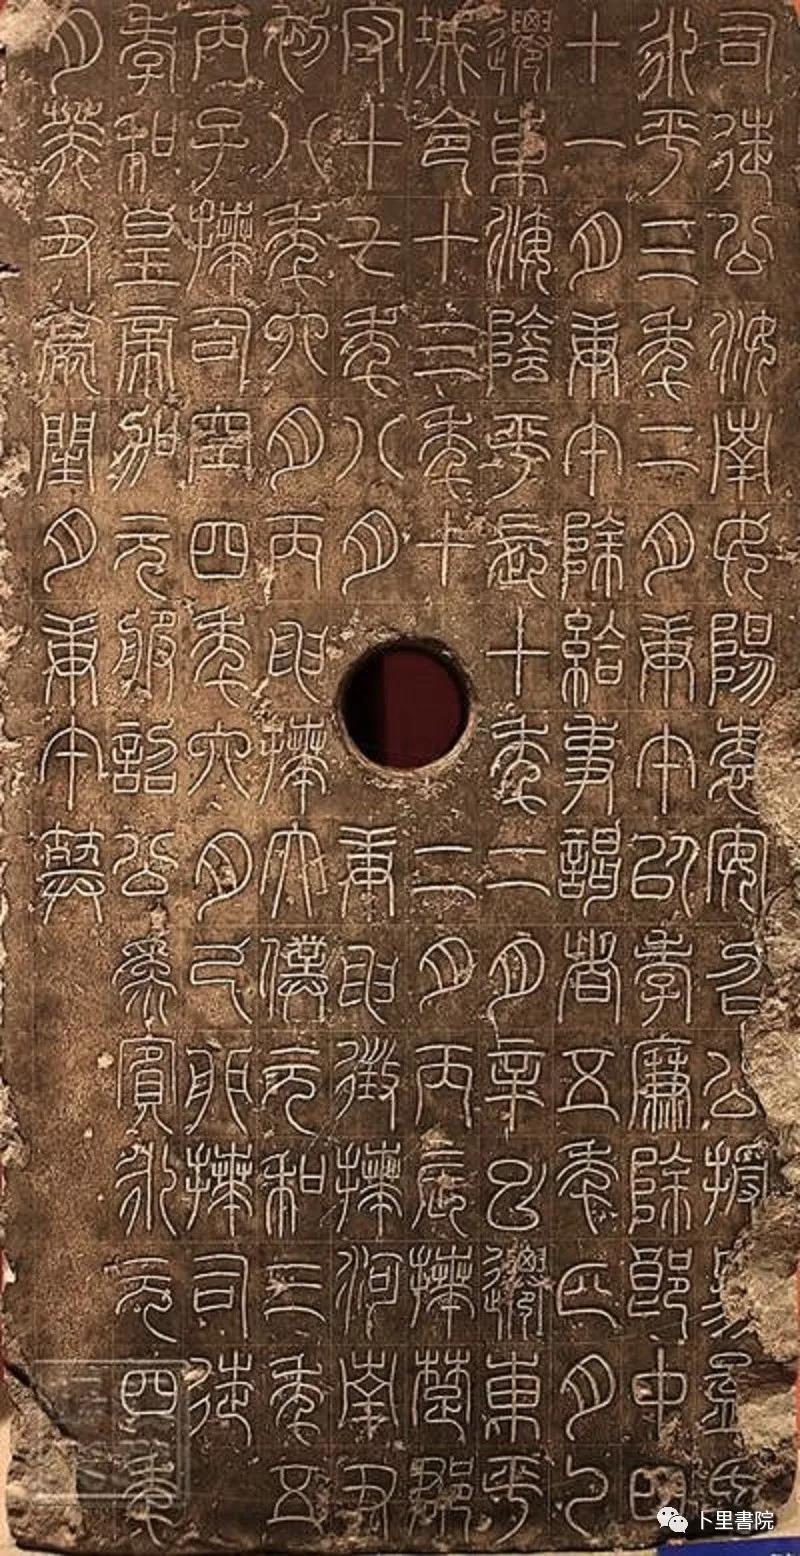 司徒公汝南女陽袁安召公授易孟氏
永平三年二月庚午以孝廉除郎中四
十一月庚午除給事謁者五年正月乙
遷東海陰平長十年二月辛巳遷東平
城令十三年十二月丙辰拜楚郡
守十七年八月庚申徵拜河南尹
初八年六月丙申拜太僕元和三年五
丙子拜司空四年六月己卯拜司徒
孝和皇帝加元服詔公為賓永元四年
月癸丑薨閏月庚午葬
卜里書院